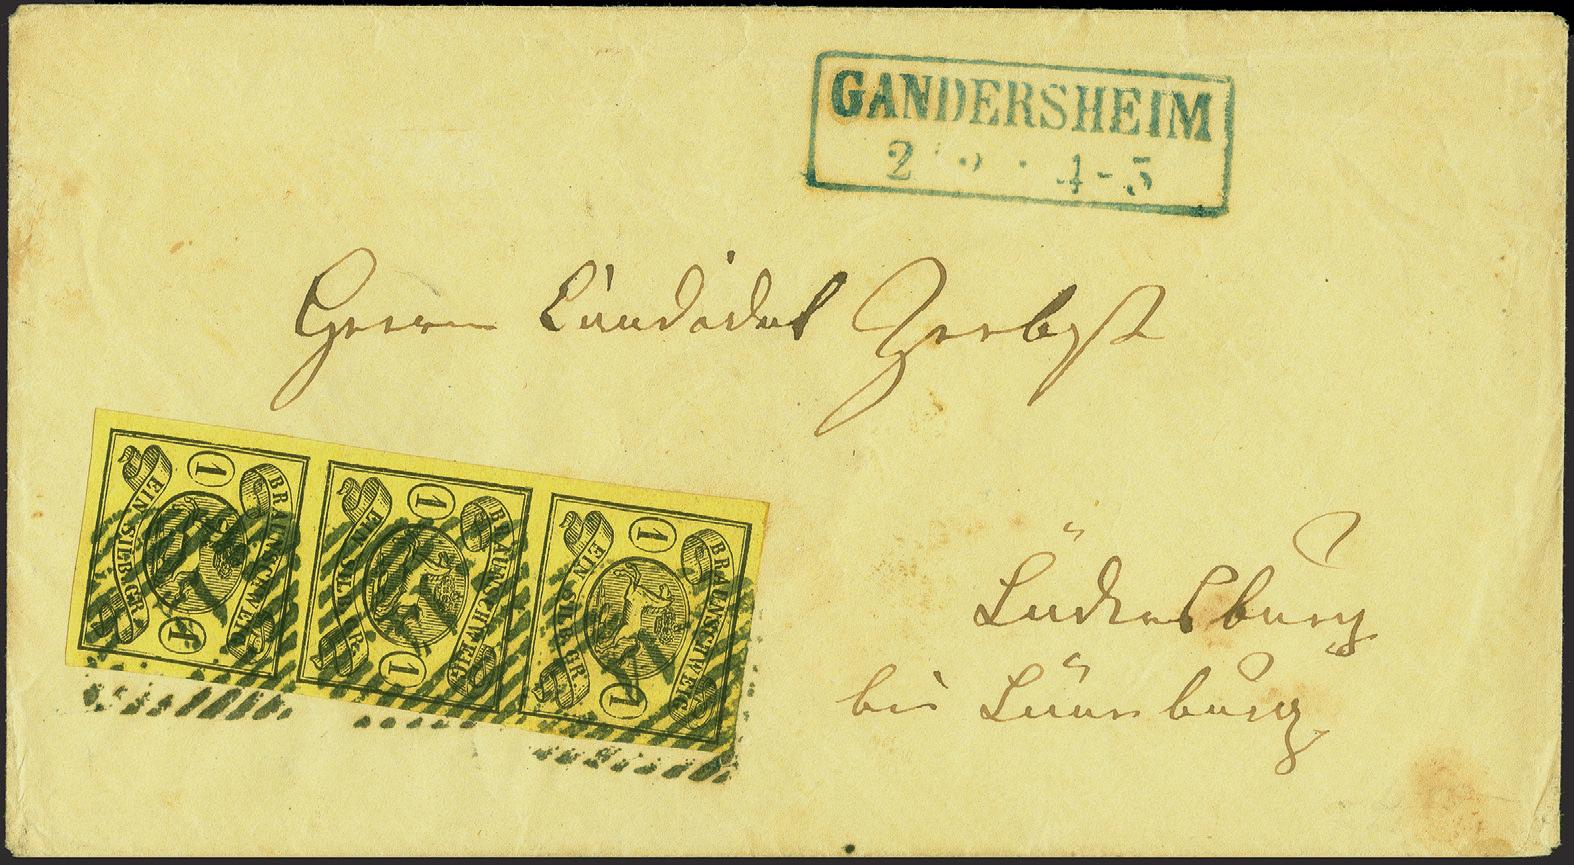 GANDERSHEIM
2 4-5
Herrn Candidat Zerbst
1 BRAUNSCHWEIG EIN SILB.GR. 1
1 BRAUNSCHWEIG EIN SILB.GR. 1
1 BRAUNSCHWEIG EIN SILB.GR. 1
Lüdersburg
bei Lüneburg